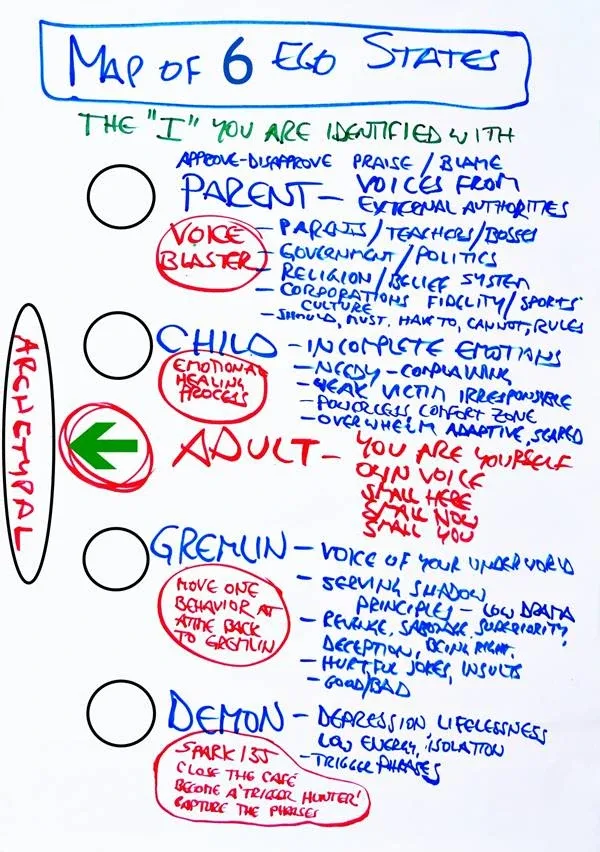 MAP OF 6 EGO STATES
THE "I" YOU ARE IDENTIFIED WITH
APPROVE-DISAPPROVE PRAISE/BLAME
PARENT - VOICES FROM
EXTERNAL AUTHORITIES
VOICE
BLASTER
- PARENTS/TEACHERS/BOSSES
- GOVERNMENT/POLITICS
- RELIGION/BELIEF SYSTEM
- CORPORATIONS FIDELITY/SPORTS
CULTURE
- SHOULD, MUST, HAVE TO, CANNOT, RULES
CHILD - INCOMPLETE EMOTIONS
EMOTIONAL
HEALING
PROCESS
- NEEDY - COMPLAINING
- WEAK VICTIM IRRESPONSIBLE
- POWERLESS COMFORT ZONE
- OVERWHELM ADAPTIVE, SCARED
ARCHETYPAL
ADULT - YOU ARE YOURSELF
OWN VOICE
SMALL HERE
SMALL NOW
SMALL YOU
GREMLIN - VOICE OF YOUR UNDERWORLD
- SERVING SHADOW
PRINCIPLES - LOW DRAMA
- REVENGE, SABOTAGE, SUPERIORITY,
DECEPTION, BEING RIGHT,
- HURTFUL JOKES, INSULTS
- GOOD/BAD
MOVE ONE
BEHAVIOR AT
A TIME BACK
TO GREMLIN
DEMON - DEPRESSION LIFELESSNESS
LOW ENERGY, ISOLATION
- TRIGGER PHRASES
SPARK 135
CLOSE THE CAFE
BECOME A 'TRIGGER HUNTER'
CAPTURE THE PHRASES